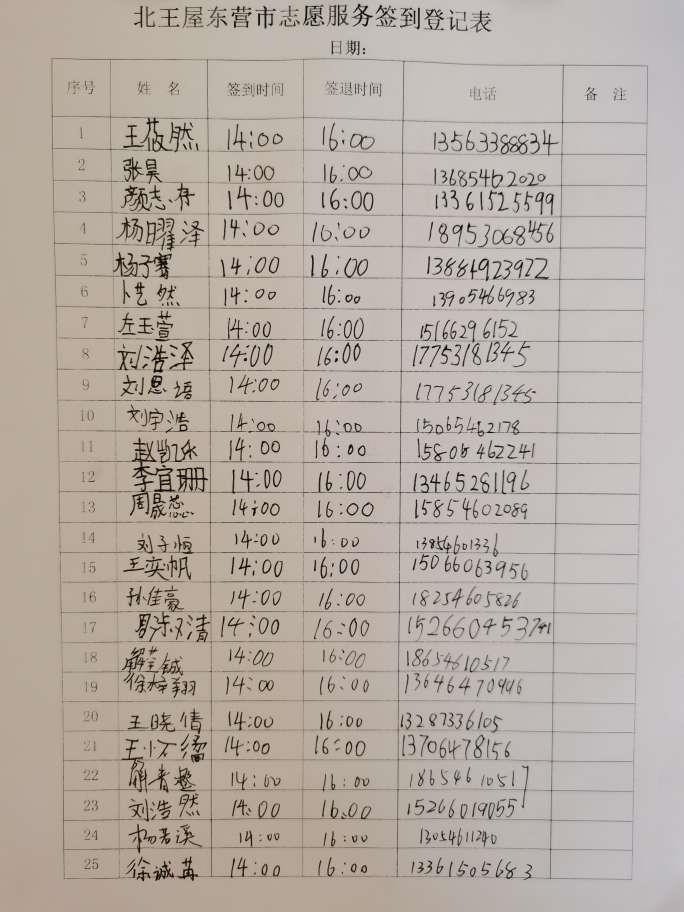 北王屋东营市志愿服务签到登记表
日期：
序号 姓 名 签到时间 签退时间 电话 备 注
1 王莜然 14:00 16:00 13563388834
2 张昊 14:00 16:00 13685462020
3 颜志存 14:00 16:00 13361525599
4 杨曜泽 14:00 16:00 18953068456
5 杨子骞 14:00 16:00 13884923922
6 卜艺然 14:00 16:00 13905466983
7 左玉萱 14:00 16:00 15166296152
8 刘浩泽 14:00 16:00 17753181345
9 刘思语 14:00 16:00 17753181345
10 刘宇浩 14:00 16:00 15065462178
11 赵凯乐 14:00 16:00 15808462241
12 李宜珊 14:00 16:00 13465281196
13 周晟蕊 14:00 16:00 15854602089
14 刘子恒 14:00 16:00 13854601336
15 王奕帆 14:00 16:00 15066063956
16 孙佳豪 14:00 16:00 18254605826
17 14:00 16:00
18 14:00 16:00 18654610517
19 徐梓翔 14:00 16:00 13646470946
20 王晓倩 14:00 16:00 13287336105
21 14:00 16:00 13706478156
22 14:00 16:00 18654610517
23 刘浩然 14:00 16:00 15266019055
24 杨若溪 14:00 16:00 13054611240
25 徐诚苒 14:00 16:00 13361505683